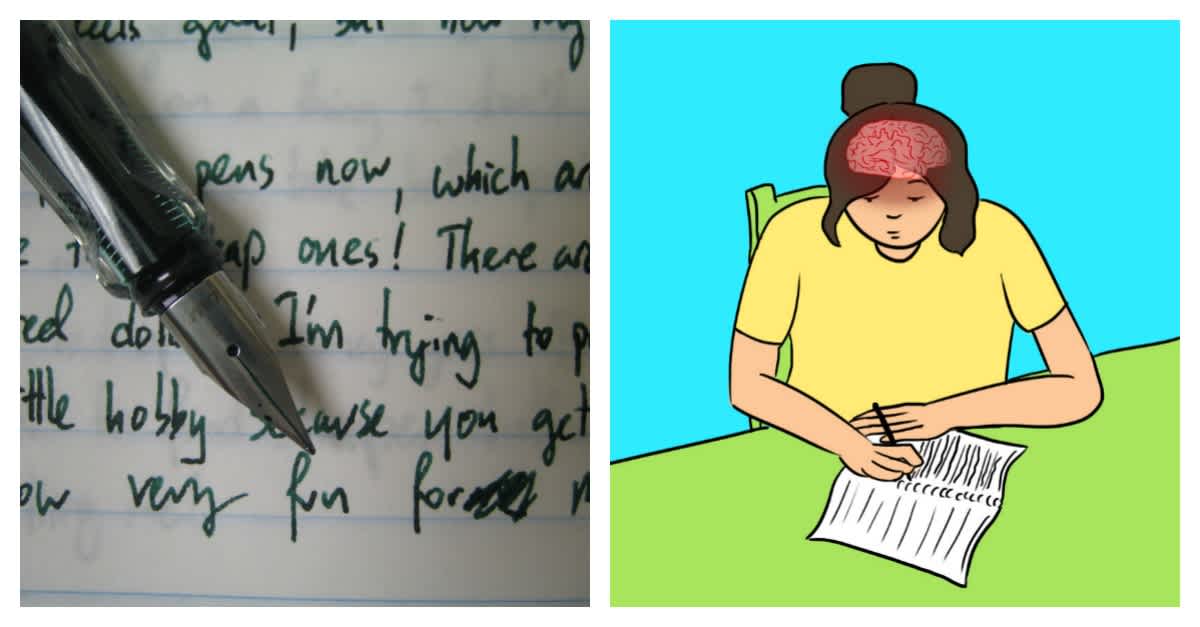 good, but now my
pens now, which ar
ap ones! There are
red dol I'm trying to p
ttle hobby because you get
ow very fun for